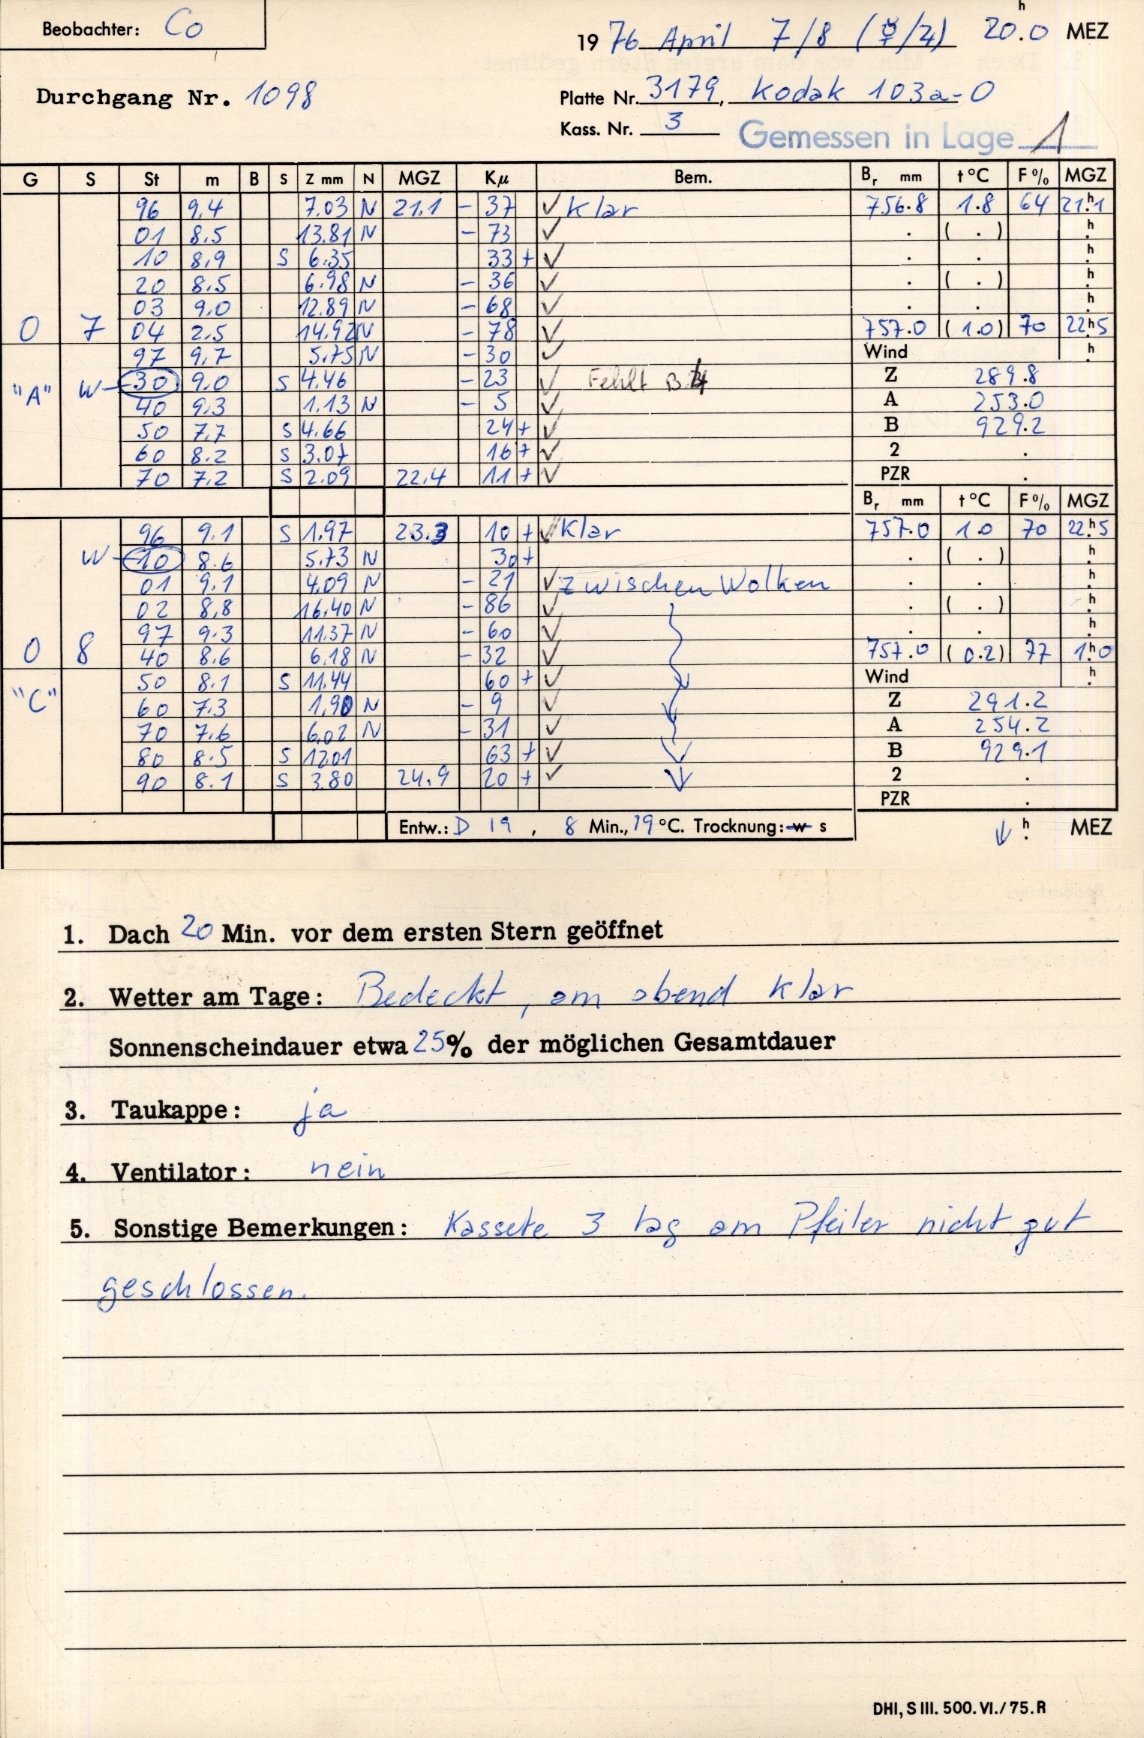 Beobachter: Co
1976 April 7/8 (☿/♃) 20.0 h MEZ
Durchgang Nr. 1098
Platte Nr. 3179, Kodak 103a-O
Kass. Nr. 3
Gemessen in Lage 1
G S St m B S Z mm N MGZ Kμ Bem. Br mm t°C F% MGZ
96 9.4 7.03 N 21.1 - 37 ✓ Klar 756.8 1.8 64 21h1
01 8.5 13.81 N - 73 ✓ . ( . ) h
10 8.9 S 6.35 33 + ✓ . . h
20 8.5 6.98 N - 36 ✓ . ( . ) h
03 9.0 12.89 N - 68 ✓ . . h
0 7 04 2.5 14.92 N - 78 ✓ 757.0 (1.0) 70 22h5
97 9.7 5.75 N - 30 ✓ Wind h
"A" W 30 9.0 S 4.46 - 23 ✓ Fehlt B.4 Z 289.8
40 9.3 1.13 N - 5 ✓ A 253.0
50 7.7 S 4.66 24 + ✓ B 929.2
60 8.2 S 3.07 16 + ✓ 2 .
70 7.2 S 2.09 22.4 11 + ✓ PZR .
Br mm t°C F% MGZ
96 9.1 S 1.97 23.3 10 + ✓ Klar 757.0 1.0 70 22h5
W 10 8.6 5.73 N 30 + . ( . ) h
01 9.1 4.09 N - 21 ✓ Zwischen Wolken . . h
02 8.8 16.40 N - 86 ✓ . ( . ) h
97 9.3 11.37 N - 60 ✓ . . h
0 8 40 8.6 6.18 N - 32 ✓ 757.0 (0.2) 77 1h0
50 8.1 S 11.44 60 + ✓ Wind h
"C" 60 7.3 1.90 N - 9 ✓ Z 291.2
70 7.6 6.02 N - 31 ✓ A 254.2
80 8.5 S 12.01 63 + ✓ B 929.1
90 8.1 S 3.80 24.9 20 + ✓ 2 .
PZR .
Entw.: D 19, 8 Min., 19 °C. Trocknung: w s ↓ h MEZ
1. Dach 20 Min. vor dem ersten Stern geöffnet
2. Wetter am Tage: Bedeckt, am abend klar
Sonnenscheindauer etwa 25% der möglichen Gesamtdauer
3. Taukappe: ja
4. Ventilator: nein
5. Sonstige Bemerkungen: Kassete 3 lag am Pfeiler nicht gut
geschlossen.
DHI, S III. 500. VI./75. R